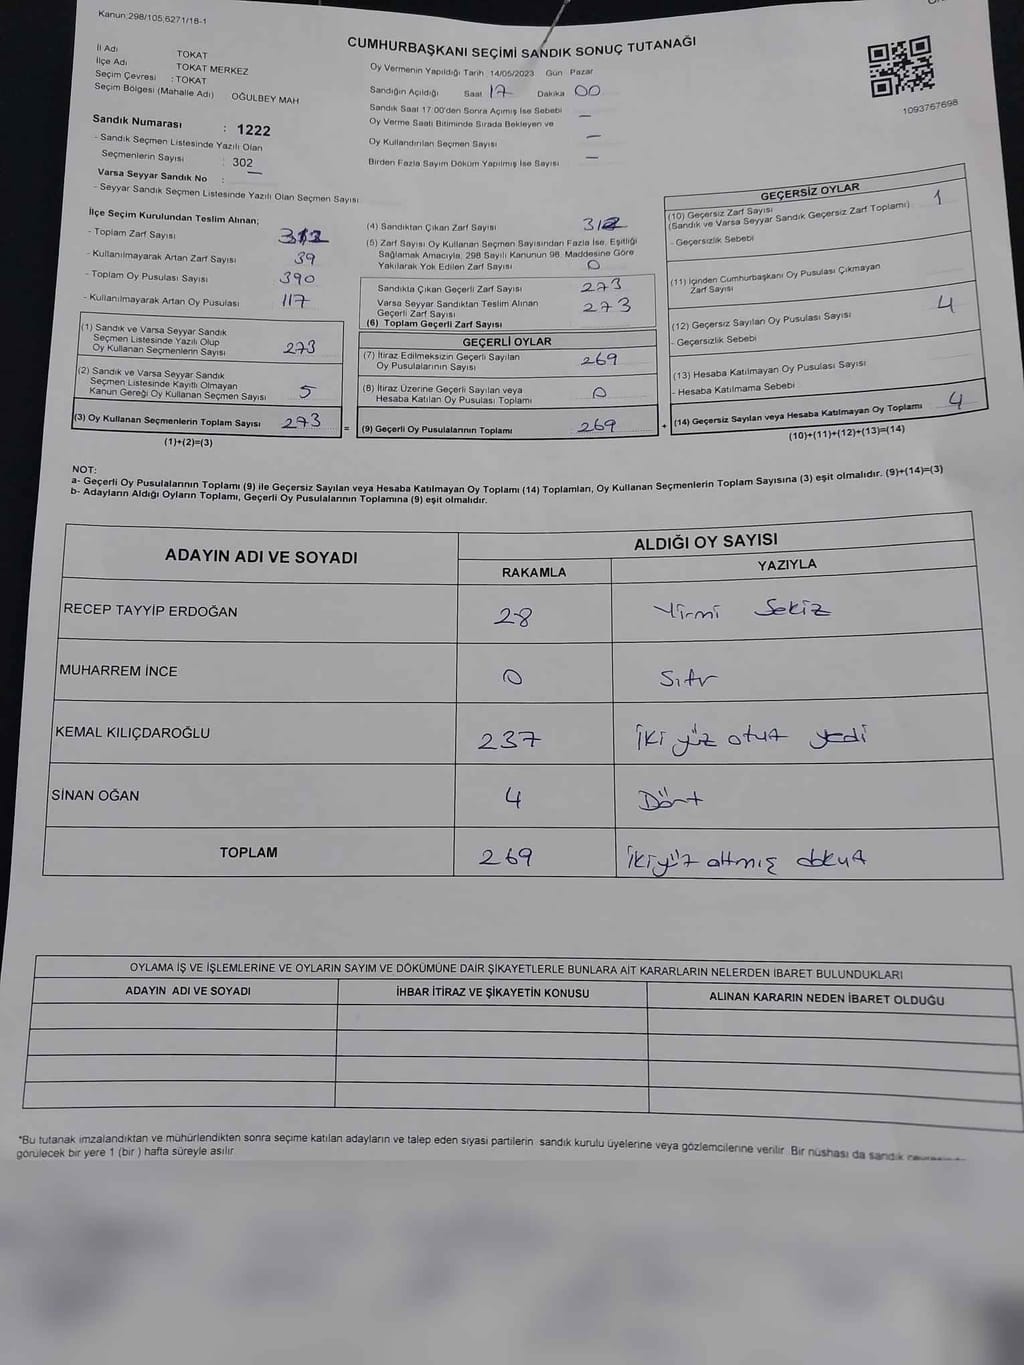 Kanun;298/105,6271/18-1
CUMHURBAŞKANI SEÇİMİ SANDIK SONUÇ TUTANAĞI
İl Adı TOKAT
İlçe Adı TOKAT MERKEZ
Seçim Çevresi : TOKAT
Seçim Bölgesi (Mahalle Adı) OĞULBEY MAH
Oy Vermenin Yapıldığı Tarih 14/05/2023 Gün Pazar
Sandığın Açıldığı Saat 17 Dakika 00
Sandık Saat 17:00'den Sonra Açımış İse Sebebi —
Oy Verme Saati Bitiminde Sırada Bekleyen ve
Oy Kullandırılan Seçmen Sayısı —
Birden Fazla Sayım Döküm Yapılmış İse Sayısı —
1093767698
Sandık Numarası : 1222
- Sandık Seçmen Listesinde Yazılı Olan
Seçmenlerin Sayısı : 302
Varsa Seyyar Sandık No : —
- Seyyar Sandık Seçmen Listesinde Yazılı Olan Seçmen Sayısı
İlçe Seçim Kurulundan Teslim Alınan;
- Toplam Zarf Sayısı
- Kullanılmayarak Artan Zarf Sayısı 39
- Toplam Oy Pusulası Sayısı 390
- Kullanılmayarak Artan Oy Pusulası 117
(1) Sandık ve Varsa Seyyar Sandık
Seçmen Listesinde Yazılı Olup
Oy Kullanan Seçmenlerin Sayısı 273
(2) Sandık ve Varsa Seyyar Sandık
Seçmen Listesinde Kayıtlı Olmayan
Kanun Gereği Oy Kullanan Seçmen Sayısı 5
(3) Oy Kullanan Seçmenlerin Toplam Sayısı 273
(1)+(2)=(3)
=
(4) Sandıktan Çıkan Zarf Sayısı
(5) Zarf Sayısı Oy Kullanan Seçmen Sayısından Fazla İse, Eşitliği
Sağlamak Amacıyla, 298 Sayılı Kanunun 98. Maddesine Göre
Yakılarak Yok Edilen Zarf Sayısı 0
Sandıkta Çıkan Geçerli Zarf Sayısı 273
Varsa Seyyar Sandıktan Teslim Alınan
Geçerli Zarf Sayısı 273
(6) Toplam Geçerli Zarf Sayısı
GEÇERLİ OYLAR
(7) İtiraz Edilmeksizin Geçerli Sayılan
Oy Pusulalarının Sayısı 269
(8) İtiraz Üzerine Geçerli Sayılan veya
Hesaba Katılan Oy Pusulası Toplamı 0
(9) Geçerli Oy Pusulalarının Toplamı 269
+
GEÇERSİZ OYLAR
(10) Geçersiz Zarf Sayısı 1
(Sandık ve Varsa Seyyar Sandık Geçersiz Zarf Toplamı)
- Geçersizlik Sebebi
(11) İçinden Cumhurbaşkanı Oy Pusulası Çıkmayan
Zarf Sayısı
(12) Geçersiz Sayılan Oy Pusulası Sayısı 4
- Geçersizlik Sebebi
(13) Hesaba Katılmayan Oy Pusulası Sayısı
- Hesaba Katılmama Sebebi
(14) Geçersiz Sayılan veya Hesaba Katılmayan Oy Toplamı 4
(10)+(11)+(12)+(13)=(14)
NOT:
a- Geçerli Oy Pusulalarının Toplamı (9) ile Geçersiz Sayılan veya Hesaba Katılmayan Oy Toplamı (14) Toplamları, Oy Kullanan Seçmenlerin Toplam Sayısına (3) eşit olmalıdır. (9)+(14)=(3)
b- Adayların Aldığı Oyların Toplamı, Geçerli Oy Pusulalarının Toplamına (9) eşit olmalıdır.
ADAYIN ADI VE SOYADI ALDIĞI OY SAYISI
RAKAMLA YAZIYLA
RECEP TAYYİP ERDOĞAN 28 Yirmi Sekiz
MUHARREM İNCE 0 Sıfır
KEMAL KILIÇDAROĞLU 237 İki yüz otuz yedi
SİNAN OĞAN 4 Dört
TOPLAM 269 İkiyüz altmış dokuz
OYLAMA İŞ VE İŞLEMLERINE VE OYLARIN SAYIM VE DÖKÜMÜNE DAİR ŞİKAYETLERLE BUNLARA AİT KARARLARIN NELERDEN İBARET BULUNDUKLARI
ADAYIN ADI VE SOYADI İHBAR İTİRAZ VE ŞİKAYETİN KONUSU ALINAN KARARIN NEDEN İBARET OLDUĞU
*Bu tutanak imzalandıktan ve mühürlendikten sonra seçime katılan adayların ve talep eden siyasi partilerin sandık kurulu üyelerine veya gözlemcilerine verilir. Bir nüshası da sandık
görülecek bir yere 1 (bir ) hafta süreyle asılır.